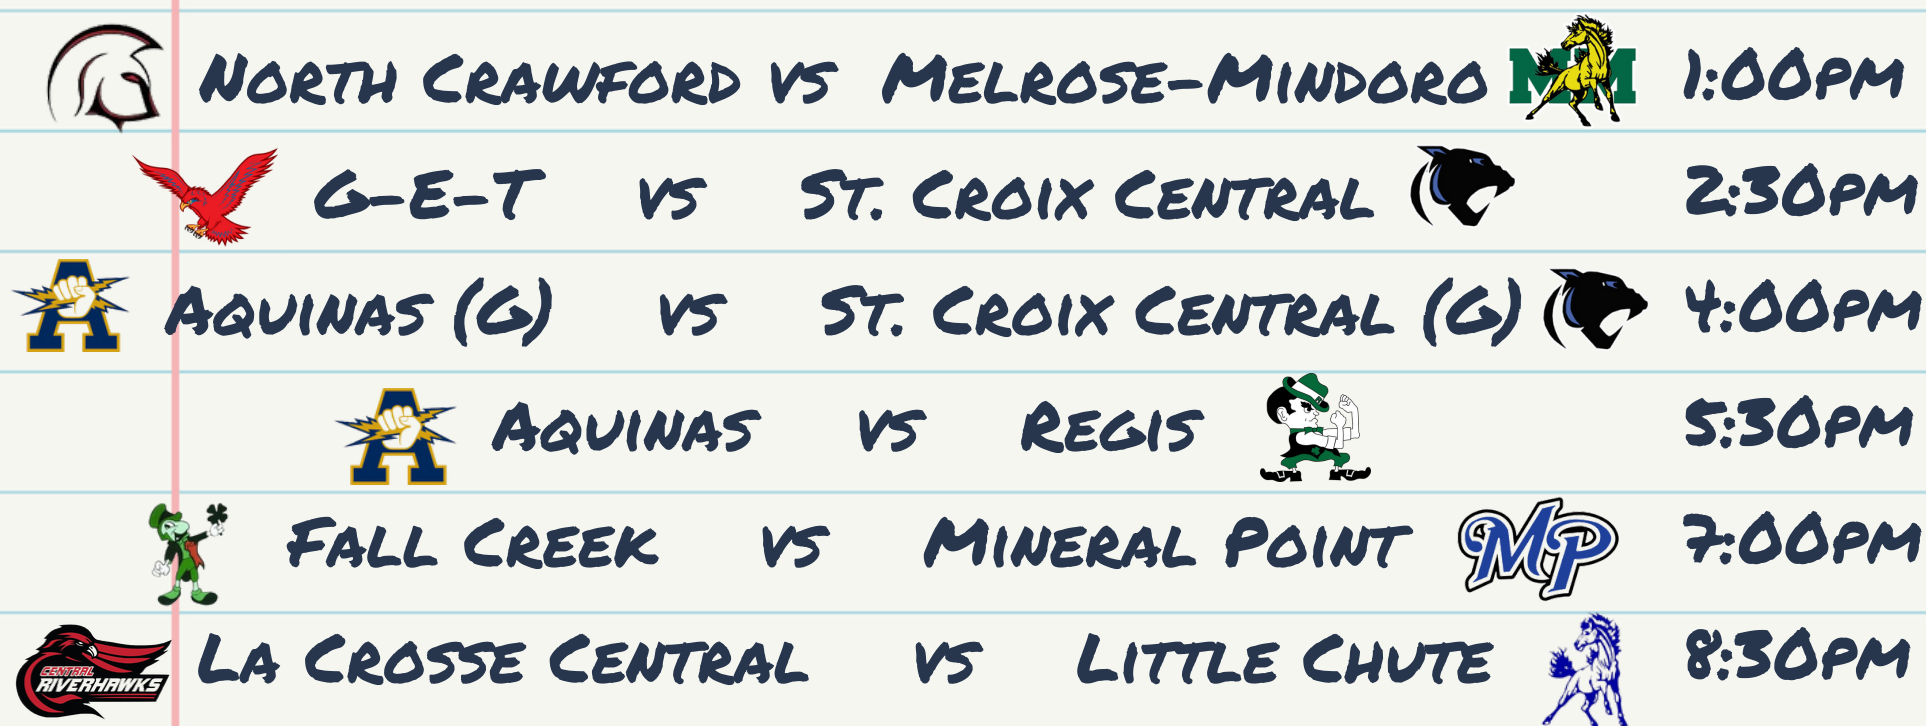 North Crawford vs Melrose-Mindoro MM 1:00pm
G-E-T vs St. Croix Central 2:30pm
A Aquinas (G) vs St. Croix Central (G) 4:00pm
A Aquinas vs Regis 5:30pm
Fall Creek vs Mineral Point MP 7:00pm
CENTRAL RIVERHAWKS La Crosse Central vs Little Chute 8:30pm